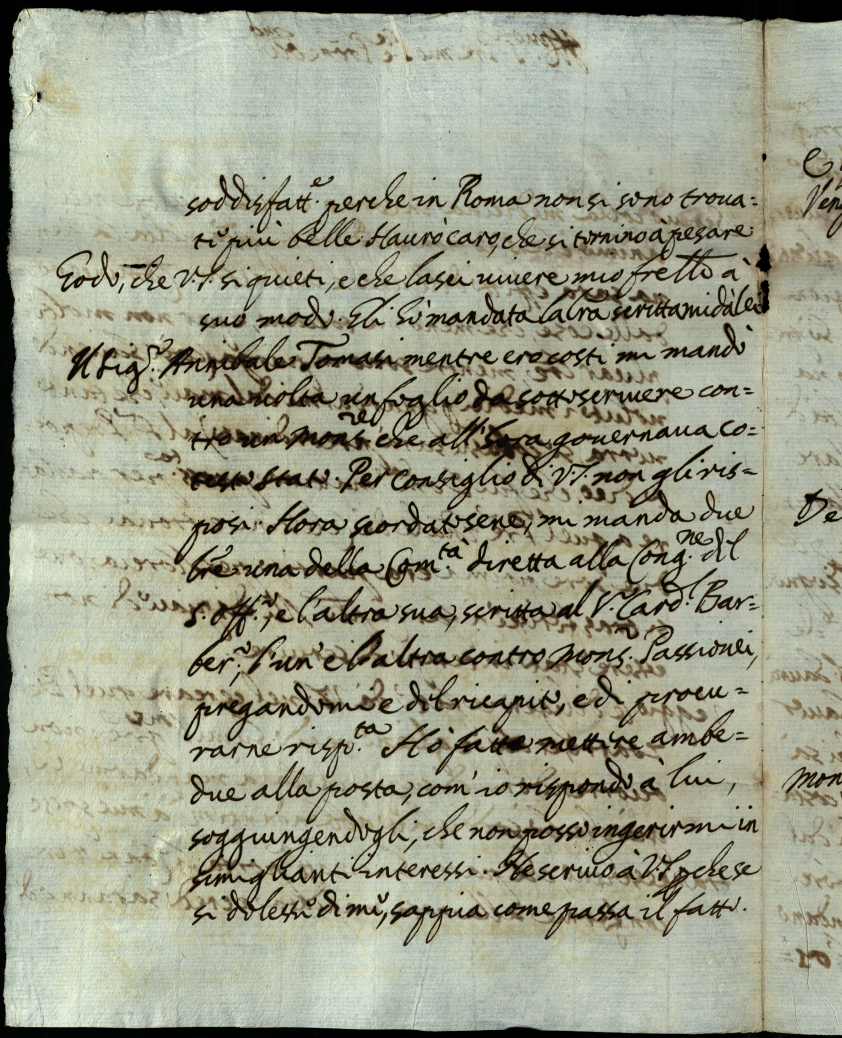 soddisfatt.e perche in Roma non si sono troua=
ti più belle. Haurò caro, che si tornino à pesare
Godo, che V.S. si quieti, e che lasci uiuere mio frello à
suo modo. Gli hò mandata la lra scrittami dà lei
Il Sig.r Annibale Tomasi mentre ero costi mi mandò
una uolta un foglio da sottoscriuere con=
tro un Mons.re che all'hora gouernaua co=
testo stato. Per consiglio di V.S. non gli ris=
posi. Hora scordatosene, mi manda due
lre una della Com.tà diretta alla Cong.ne del
S. Off.o, e l'altra sua, scritta al S.r Card.l Bar=
ber.o, l'un' e l'altra contro Mons.r Passionei,
pregandomi e del ricapito, e di procu=
rarne risp.ta Hò fatte mettere ambe=
due alla posta, com' io rispondo à lui,
soggiungendogli, che non posso ingerirmi in
simiglianti interessi. Ne scriuo à V.S. pche se
si dolesse di me, sappia come passa il fatto.